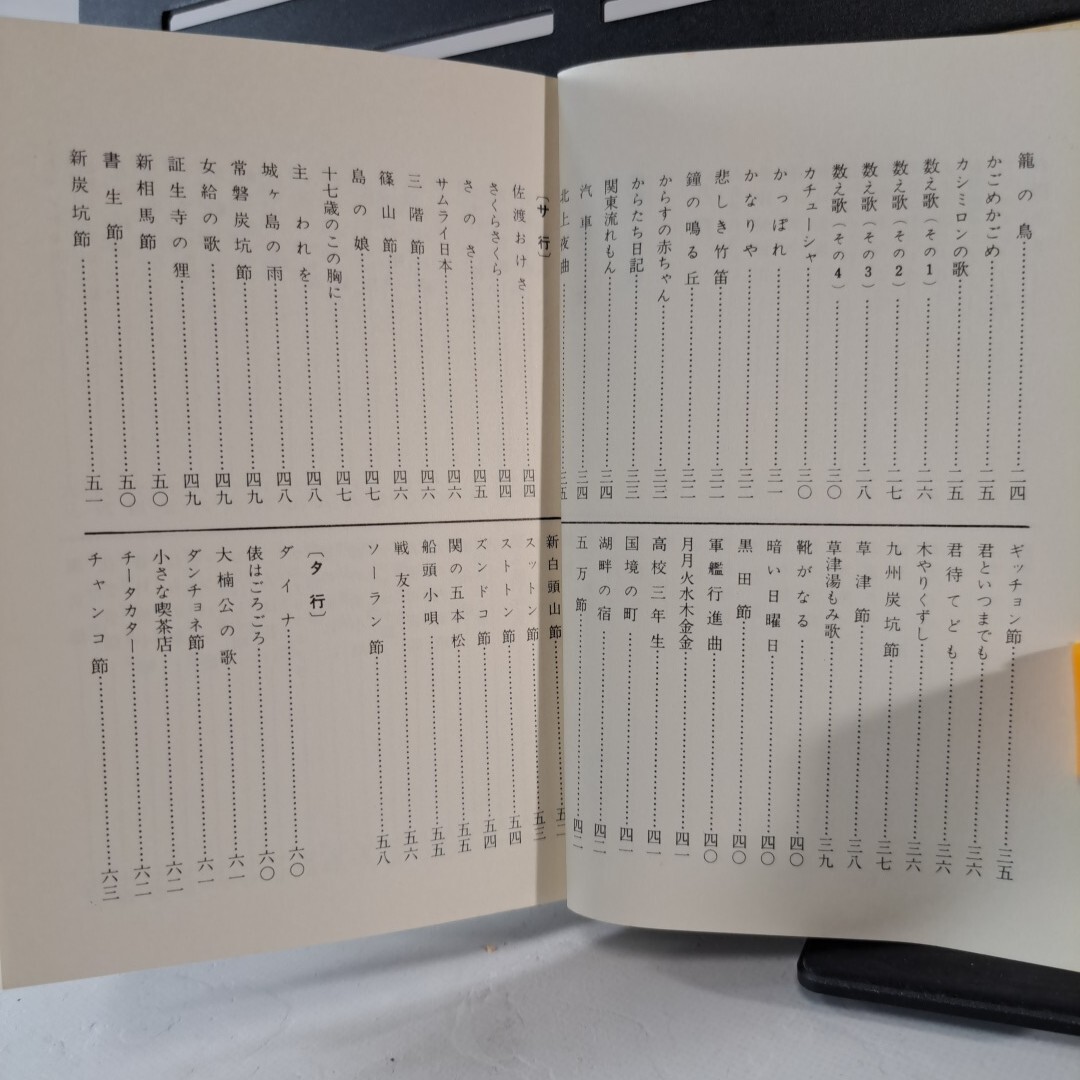 籠の鳥……二四
かごめかごめ……二五
カシミロンの歌……二五
数え歌（その1）……二六
数え歌（その2）……二七
数え歌（その3）……二八
数え歌（その4）……三〇
カチューシャ……三〇
かっぽれ……三一
かなりや……三二
悲しき竹笛……三二
鐘の鳴る丘……三二
からすの赤ちゃん……三三
からたち日記……三三
関東流れもん……三四
汽車……三四
北上夜曲……三五
ギッチョン節……三五
君といつまでも……三六
君待てども……三六
木やりくずし……三六
九州炭坑節……三七
草津節……三八
草津湯もみ歌……三九
靴がなる……四〇
暗い日曜日……四〇
黒田節……四〇
軍艦行進曲……四〇
月月火水木金金……四一
高校三年生……四一
国境の町……四一
湖畔の宿……四二
五万節……四二
〔サ行〕
佐渡おけさ……四四
さくらさくら……四四
さのさ……四五
サムライ日本……四六
三階節……四六
篠山節……四六
島の娘……四七
十七歳のこの胸に……四七
主われを……四八
城ヶ島の雨……四八
常磐炭坑節……四九
女給の歌……四九
証生寺の狸……四九
新相馬節……五〇
書生節……五〇
新炭坑節……五一
新白頭山節……五二
スットン節……五三
ストトン節……五四
ズンドコ節……五四
関の五本松……五五
船頭小唄……五五
戦友……五六
ソーラン節……五八
〔タ行〕
ダイナ……六〇
俵はごろごろ……六〇
大楠公の歌……六一
ダンチョネ節……六一
小さな喫茶店……六二
チータカター……六二
チャンコ節……六三